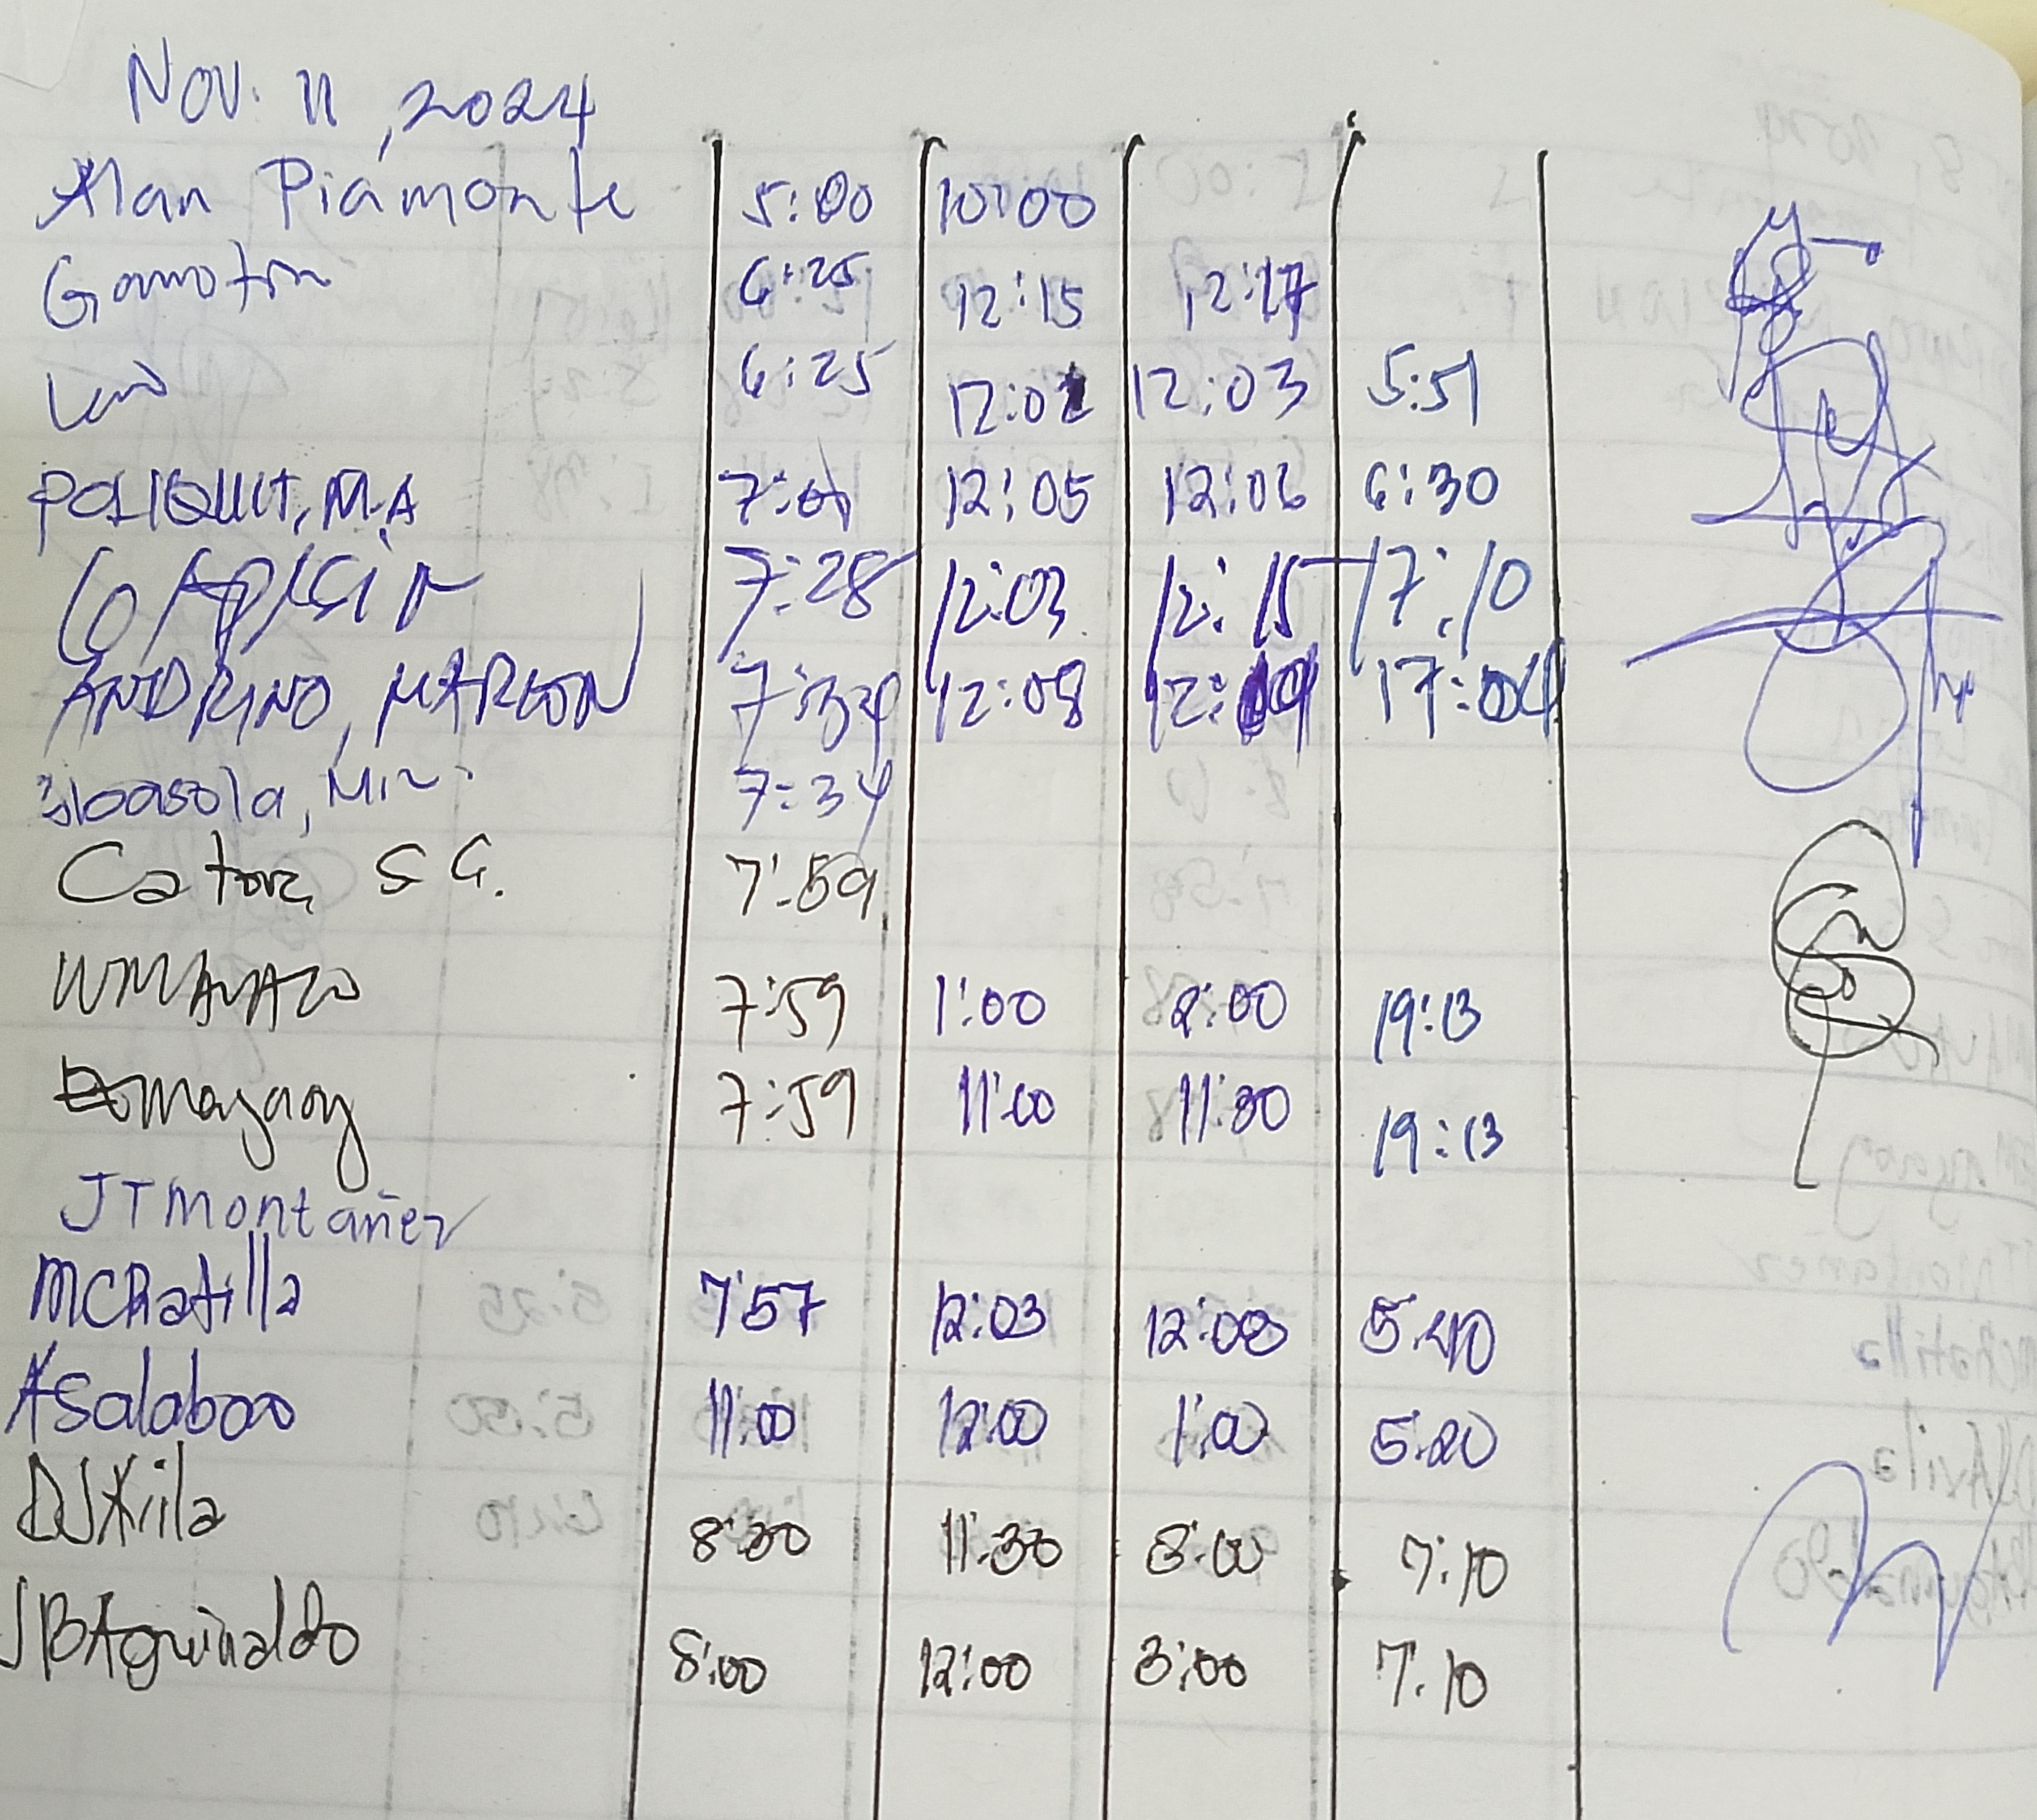 Nov. 11, 2024
Alan Piamonte 5:00 10:00
Gamotin 6:25 12:15 12:17
6:25 12:02 12:03 5:51
POLIQUIT, M.A 7:01 12:05 12:06 6:30
7:28 12:03 12:15 17:10
ANDRINO, MARLON 7:34 12:08 12:09 17:04
7:34
Catora, S G. 7:59
7:59 1:00 2:00 19:13
Magaoy 7:59 11:00 11:30 19:13
JTMontañez
MCRatilla 7:57 12:03 12:08 5:40
ASalaboo 11:00 12:00 1:00 5:20
DJAvila 8:30 11:30 3:00 7:10
JBAguinaldo 8:00 12:00 3:00 7:10